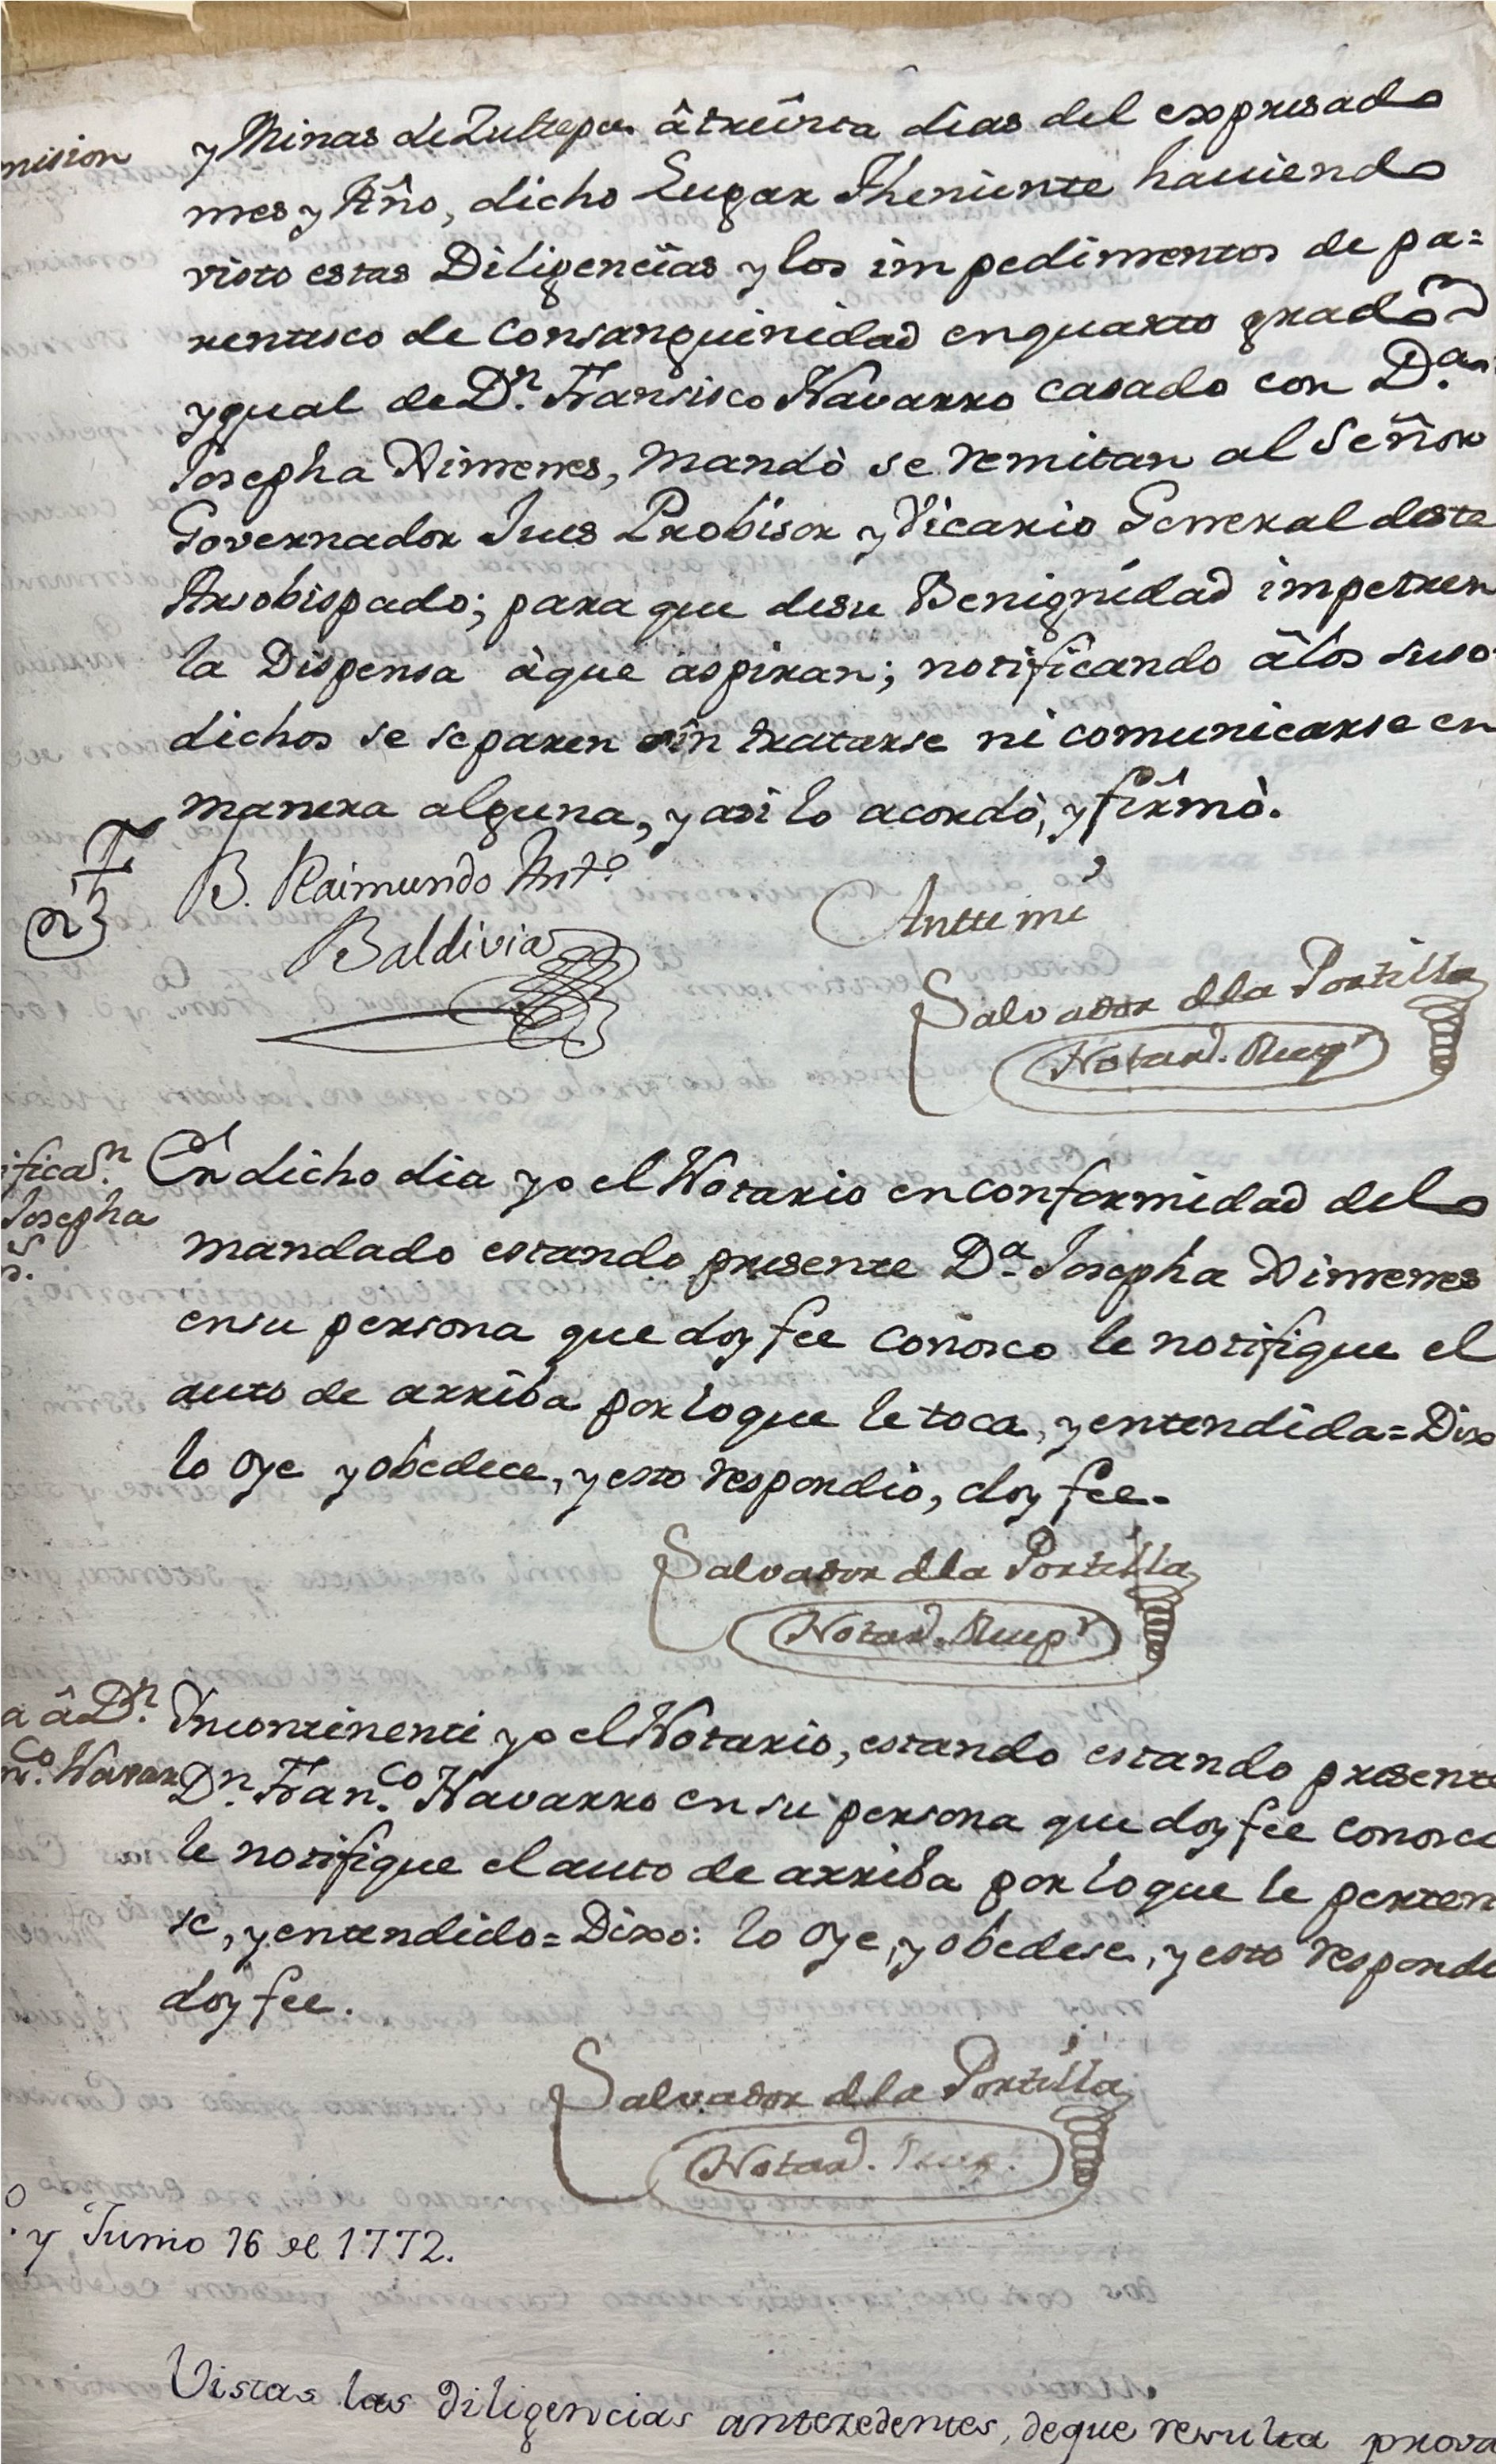 mision
y Minas de Zultepec â treînta dîas del expresado
mes y Año, dicho Lugar Theniente haviendo
visto estas Diligencias y los impedimentos de pa=
rentesco de Consanguinidad en quarto grado
ygual de Dn. Fransisco Navarro casado con Da.
Josepha Ximenes, mandò se remitan al Señor
Governador Jues Probisor y Vicario General deste
Arsobispado; para que de su Benignidad impetren
la Dispensa àque aspiran; notificando âlos suso
dichos se separen sin tratarse ni comunicarse en
manera alguna, y asi lo acordò, y firmò.
B. Raimundo Antº
Baldivia
Antte mi
Salvador dla Portilla
Notard.
ifican.
Josepha
s.
En dicho dia yo el Notario en conformidad delo
mandado estando presente Da. Josepha Ximenes
en su persona que doy fee conosco le notifique el
auto de arriba por lo que le toca, y entendida= Dixo
lo oye y obedece, y esto respondio, doy fee.
Salvador dla Portilla
Notard.
a â Dn.
nco. Navarr
Yncontinenti yo el Notario, estando estando presente
Dn. Franco. Navarro en su persona que doy fee conosco
le notifique el auto de arriba por lo que le perten
se, y entendido= Dixo: lo oye, y obedese, y esto respondi
doy fee.
Salvador dla Portilla
Notard.
o
. y Junio 16 de 1772.
Vistas las diligencias antezedentes, deque resulta prova